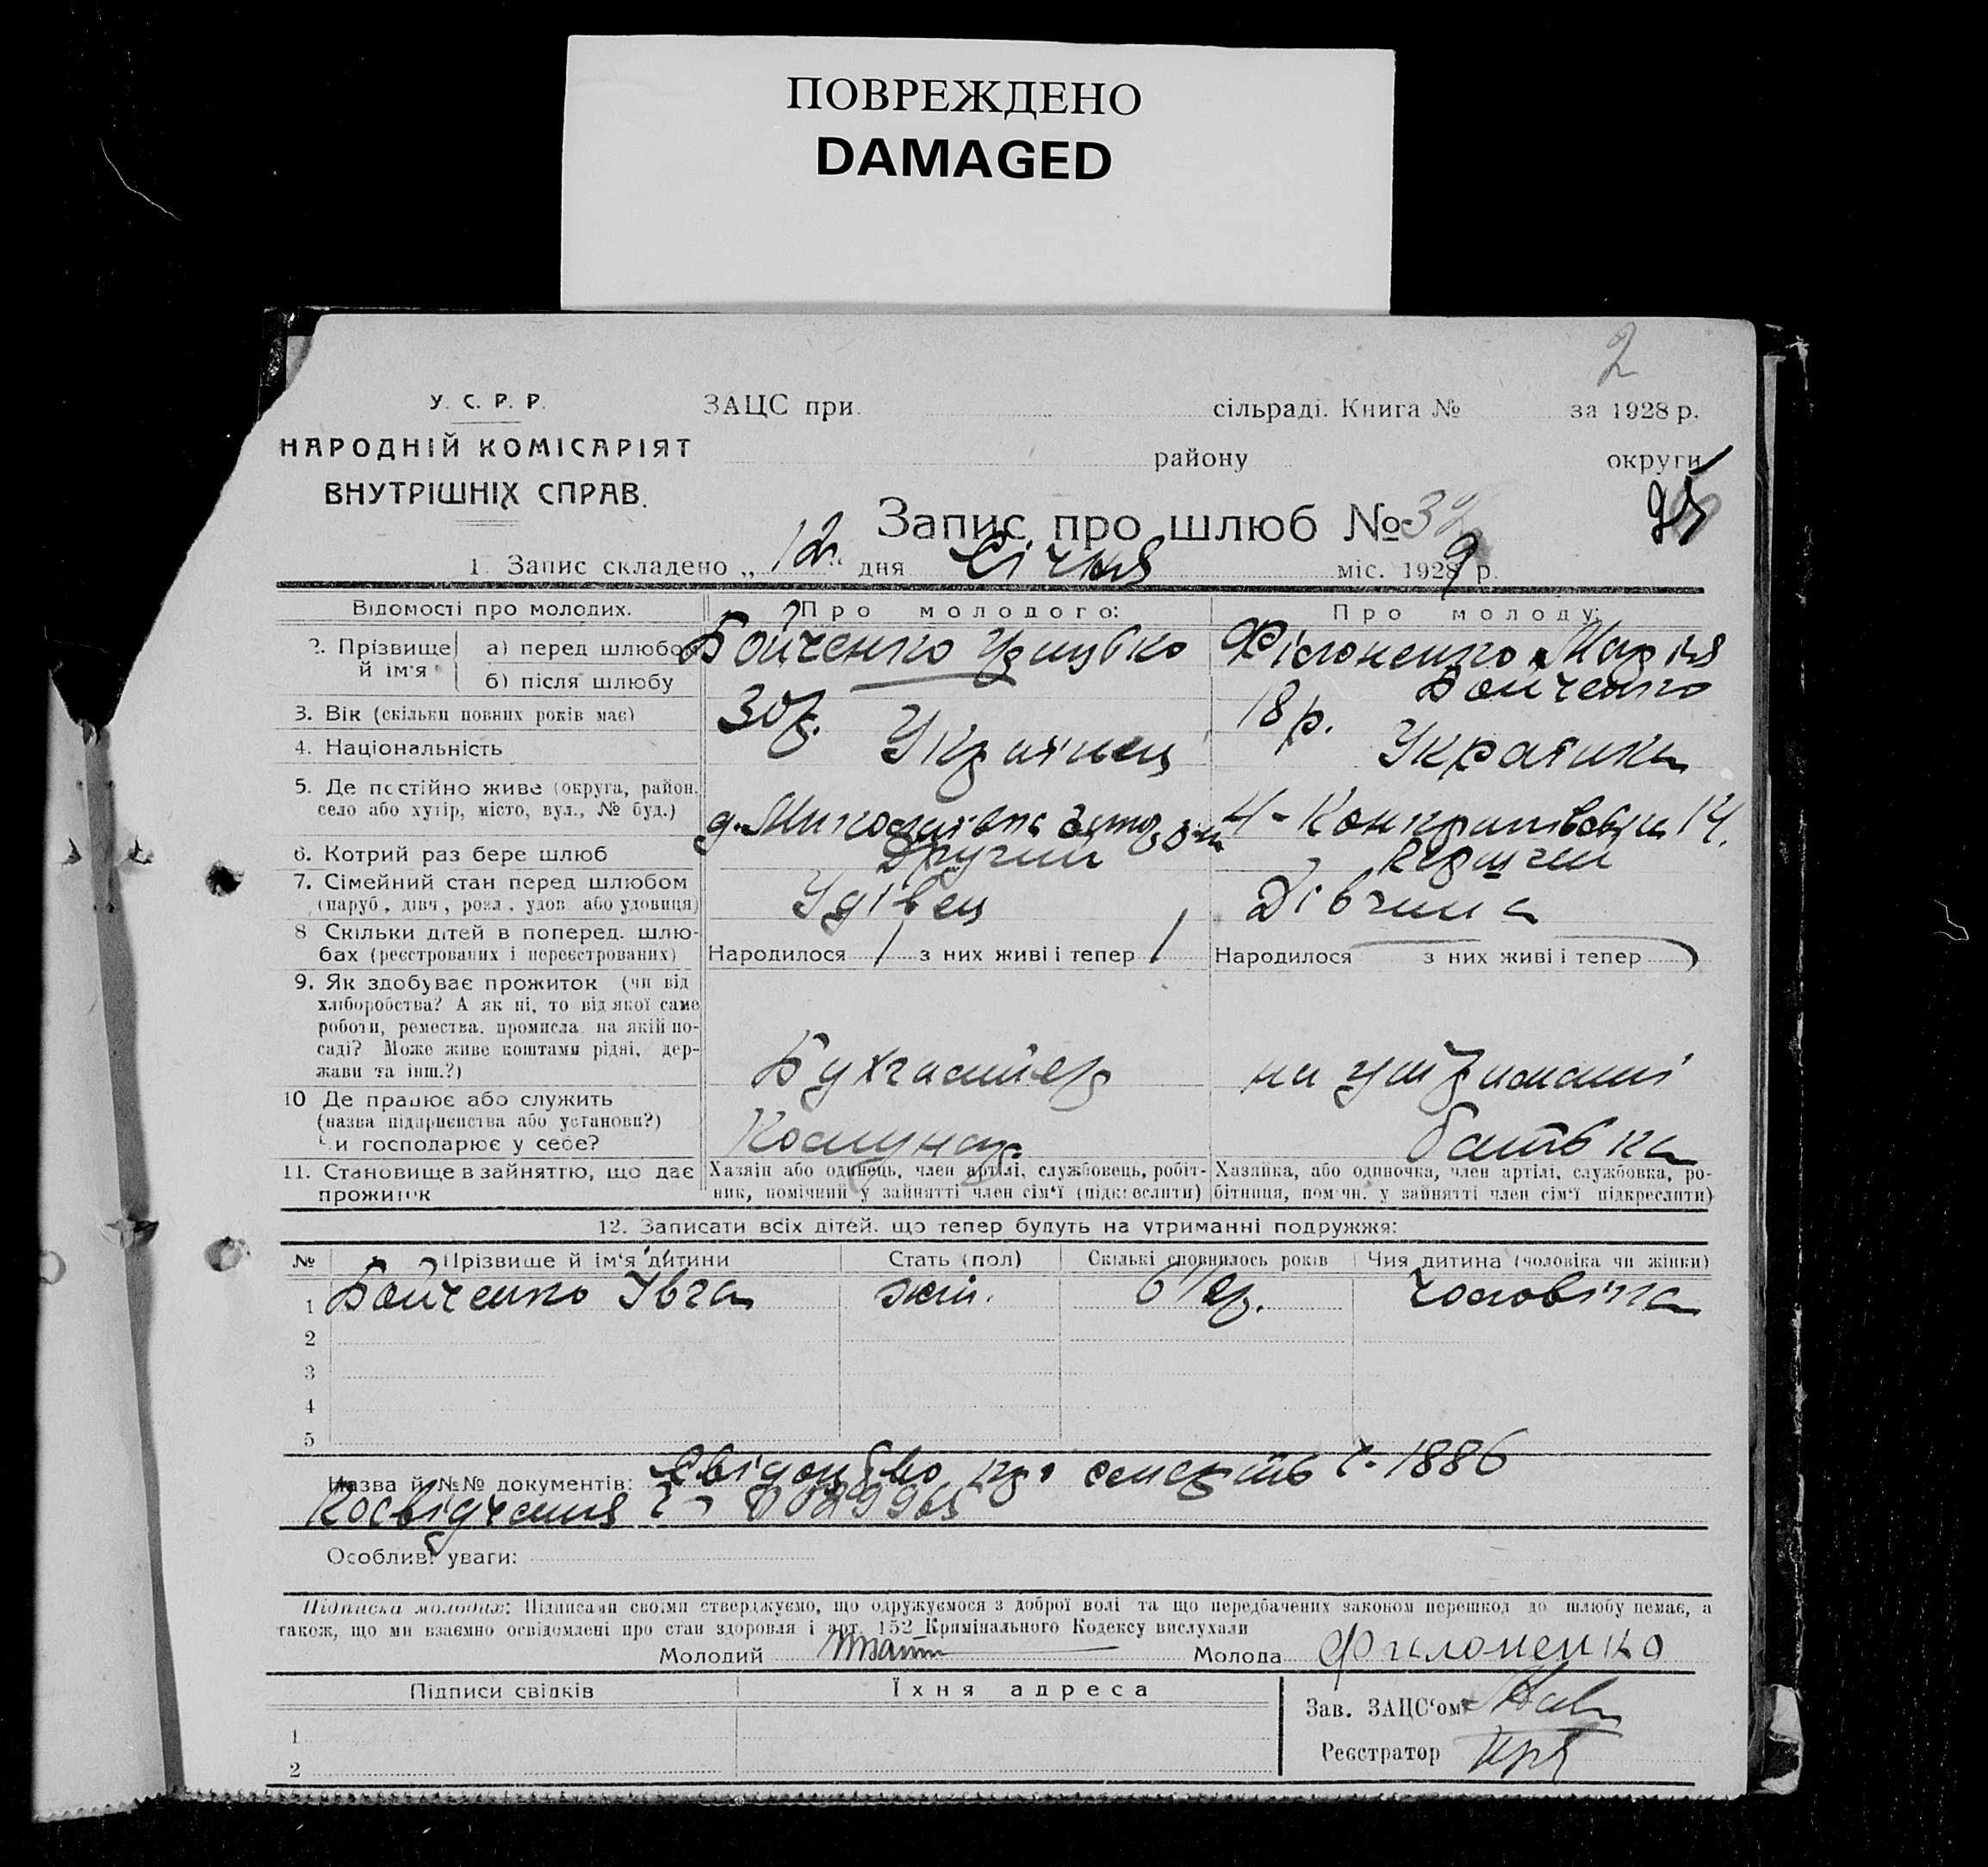 ПОВРЕЖДЕНО
DAMAGED
2
У. С. Р. Р.
НАРОДНІЙ КОМІСАРІЯТ
ВНУТРІШНІХ СПРАВ.
ЗАЦС при сільраді. Книга № за 1928 р.
району округи
95
Запис про шлюб № 32
1 Запис складено „12“ дня Січня міс. 1929 р.
Відомості про молодих. Про молодого: Про молоду:
2. Прізвище й ім'я а) перед шлюбом Бойченко Філоненко Марія
б) після шлюбу Бойченко
3. Вік (скільки повних років має) 30 р. 18 р.
4. Національність Українець Українка
5. Де постійно живе (округа, район, село або хутір, місто, вул., № буд.) 14.
6. Котрий раз бере шлюб Другий Перший
7. Сімейний стан перед шлюбом (паруб., дівч., розл., удов. або удовиця) Удівець Дівчина
8 Скільки дітей в поперед. шлюбах (реєстрованих і нереєстрованих) Народилося 1 з них живі і тепер 1 Народилося з них живі і тепер
9. Як здобуває прожиток (чи від хліборобства? А як ні, то від якої саме роботи, ремества, промисла, на якій посаді? Може живе коштами рідні, держави та інш.?) Бухгалтер на утриманні
10 Де працює або служить (назва підприємства або установи?) Чи господарює у себе? батька
11. Становище в зайняттю, що дає прожиток Хазяїн або одинець, член артілі, службовець, робітник, помічний у зайнятті член сім'ї (підкреслити) Хазяйка, або одиночка, член артілі, службовка, робітниця, помічн. у зайнятті член сім'ї підкреслити)
12. Записати всіх дітей, що тепер будуть на утриманні подружжя:
№ Прізвище й ім'я дитини Стать (пол) Скількі сповнилось років Чия дитина (чоловіка чи жінки)
1 Бойченко Івга жін. 6 чоловіка
2
3
4
5
Назва й №№ документів: Свідоцтво про смерть ч. 1886
Посвідчення ч.
Особливі уваги:
Підписка молодих: Підписами своїми стверджуємо, що одружуємося з доброї волі та що передбачених законом перешкод до шлюбу немає, а
також, що ми взаємно освідомлені про стан здоровля і арт. 152 Кримінального Кодексу вислухали
Молодий Молода Филоненко
Підписи свідків Їхня адреса
Зав. ЗАЦС'ом
1
Реєстратор
2